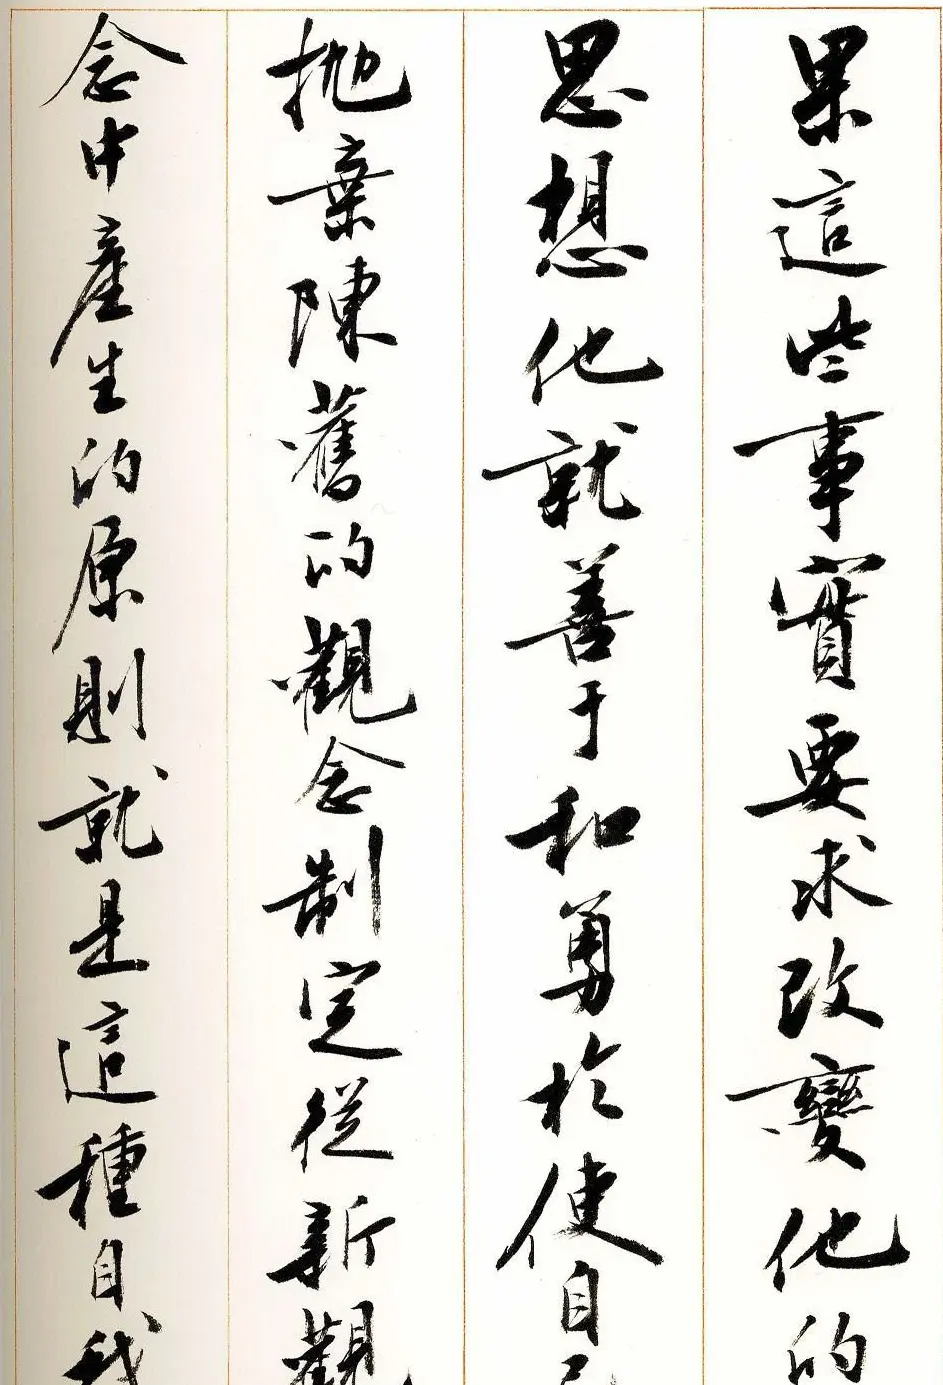 果這些事實要求改變他的
思想他就善于和勇於使自己
抛棄陳舊的觀念制定從新觀
念中產生的原則就是這種自我